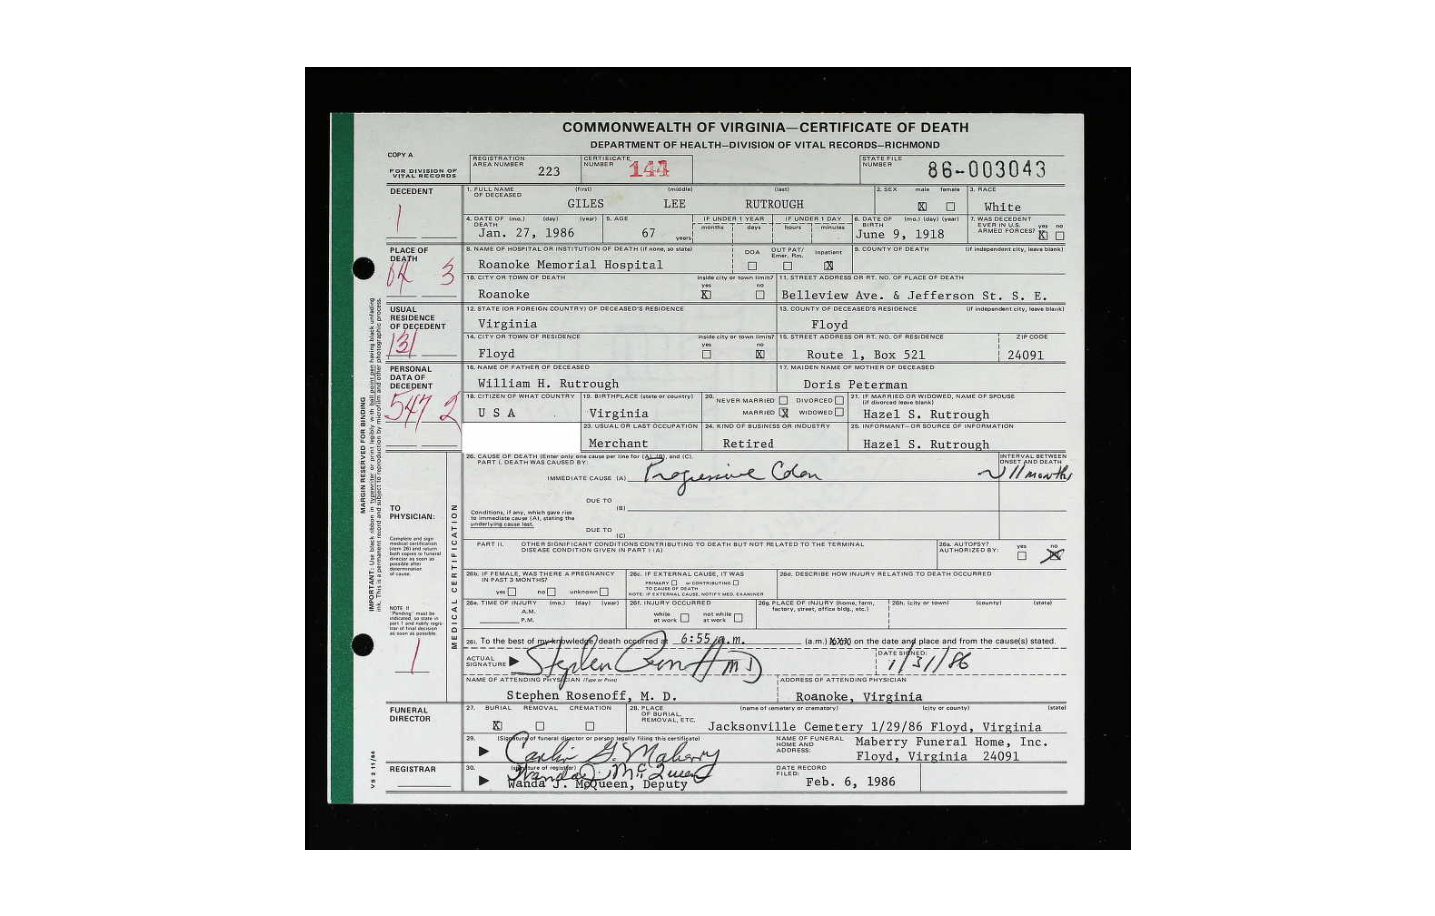 COMMONWEALTH OF VIRGINIA—CERTIFICATE OF DEATH
DEPARTMENT OF HEALTH—DIVISION OF VITAL RECORDS—RICHMOND
COPY A
FOR DIVISION OF VITAL RECORDS
REGISTRATION AREA NUMBER 223
CERTIFICATE NUMBER 144
STATE FILE NUMBER 86-003043
DECEDENT
1
1. FULL NAME OF DECEASED (first) (middle) (last)
GILES LEE RUTROUGH
2. SEX male female
X
3. RACE
White
4. DATE OF DEATH (mo.) (day) (year)
Jan. 27, 1986
5. AGE
67 years
IF UNDER 1 YEAR months days
IF UNDER 1 DAY hours minutes
6. DATE OF BIRTH (mo.) (day) (year)
June 9, 1918
7. WAS DECEDENT EVER IN U.S. ARMED FORCES? yes no
X
PLACE OF DEATH
3
8. NAME OF HOSPITAL OR INSTITUTION OF DEATH (if none, so state)
Roanoke Memorial Hospital
DOA OUT PAT/ Emer. Rm. inpatient
X
9. COUNTY OF DEATH (if independent city, leave blank)
10. CITY OR TOWN OF DEATH inside city or town limits? yes no
Roanoke X
11. STREET ADDRESS OR RT. NO. OF PLACE OF DEATH
Belleview Ave. & Jefferson St. S. E.
USUAL RESIDENCE OF DECEDENT
131
12. STATE (OR FOREIGN COUNTRY) OF DECEASED'S RESIDENCE
Virginia
13. COUNTY OF DECEASED'S RESIDENCE (if independent city, leave blank)
Floyd
14. CITY OR TOWN OF RESIDENCE inside city or town limits? yes no
Floyd X
15. STREET ADDRESS OR RT. NO. OF RESIDENCE ZIP CODE
Route 1, Box 521 24091
PERSONAL DATA OF DECEDENT
547 2
16. NAME OF FATHER OF DECEASED
William H. Rutrough
17. MAIDEN NAME OF MOTHER OF DECEASED
Doris Peterman
18. CITIZEN OF WHAT COUNTRY
U S A
19. BIRTHPLACE (state or country)
Virginia
20. NEVER MARRIED DIVORCED
MARRIED X WIDOWED
21. IF MARRIED OR WIDOWED, NAME OF SPOUSE (if divorced leave blank)
Hazel S. Rutrough
23. USUAL OR LAST OCCUPATION
Merchant
24. KIND OF BUSINESS OR INDUSTRY
Retired
25. INFORMANT—OR SOURCE OF INFORMATION
Hazel S. Rutrough
MARGIN RESERVED FOR BINDING
IMPORTANT: Use black ribbon in typewriter or print legibly with ball point pen having black unfading ink. This is a permanent record and subject to reproduction by microfilm and other photographic process.
TO PHYSICIAN:
Complete and sign medical certification (item 26) and return both copies to funeral director as soon as possible after determination of cause.
NOTE: If "Pending" must be indicated, so state in part I and notify registrar of final decision as soon as possible.
1
MEDICAL CERTIFICATION
26. CAUSE OF DEATH (Enter only one cause per line for (A), (B), and (C).
PART I. DEATH WAS CAUSED BY:
INTERVAL BETWEEN ONSET AND DEATH
IMMEDIATE CAUSE (A) Progressive Colon ~ 11 months
DUE TO
(B)
Conditions, if any, which gave rise to immediate cause (A), stating the underlying cause last.
DUE TO
(C)
PART II. OTHER SIGNIFICANT CONDITIONS CONTRIBUTING TO DEATH BUT NOT RELATED TO THE TERMINAL DISEASE CONDITION GIVEN IN PART I (A)
26a. AUTOPSY? AUTHORIZED BY: yes no
X
26b. IF FEMALE, WAS THERE A PREGNANCY IN PAST 3 MONTHS?
yes no unknown
26c. IF EXTERNAL CAUSE, IT WAS
PRIMARY or CONTRIBUTING
TO CAUSE OF DEATH
NOTE: IF EXTERNAL CAUSE, NOTIFY MED. EXAMINER
26d. DESCRIBE HOW INJURY RELATING TO DEATH OCCURRED
26e. TIME OF INJURY (mo.) (day) (year)
A.M.
P.M.
26f. INJURY OCCURRED
while at work not while at work
26g. PLACE OF INJURY (home, farm, factory, street, office bldg., etc.)
26h. (city or town) (county) (state)
26i. To the best of my knowledge, death occurred at 6:55 a.m. (a.m.) on the date and place and from the cause(s) stated.
ACTUAL SIGNATURE Stephen Rosenoff MD
DATE SIGNED: 1/31/86
NAME OF ATTENDING PHYSICIAN (Type or Print)
Stephen Rosenoff, M. D.
ADDRESS OF ATTENDING PHYSICIAN
Roanoke, Virginia
FUNERAL DIRECTOR
27. BURIAL REMOVAL CREMATION
X
28. PLACE OF BURIAL, REMOVAL, ETC. (name of cemetery or crematory) (city or county) (state)
Jacksonville Cemetery 1/29/86 Floyd, Virginia
29. (Signature of funeral director or person legally filing this certificate)
Maberry
NAME OF FUNERAL HOME AND ADDRESS:
Maberry Funeral Home, Inc.
Floyd, Virginia 24091
REGISTRAR
30. (signature of registrar)
Wanda J. McQueen
Wanda J. McQueen, Deputy
DATE RECORD FILED:
Feb. 6, 1986
VS 2 11/84